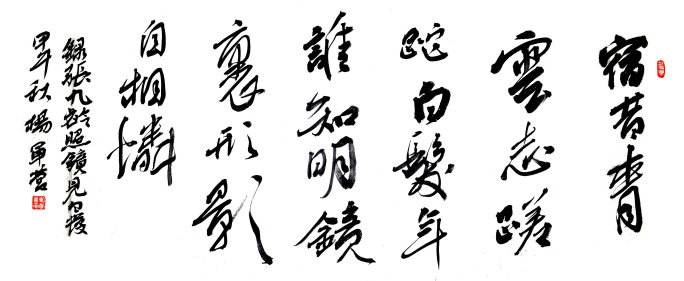 宿昔青
雲志蹉
跎白髮年
誰知明鏡
裏形影
自相憐
録張九齡照鏡見白髮
甲午秋楊軍營